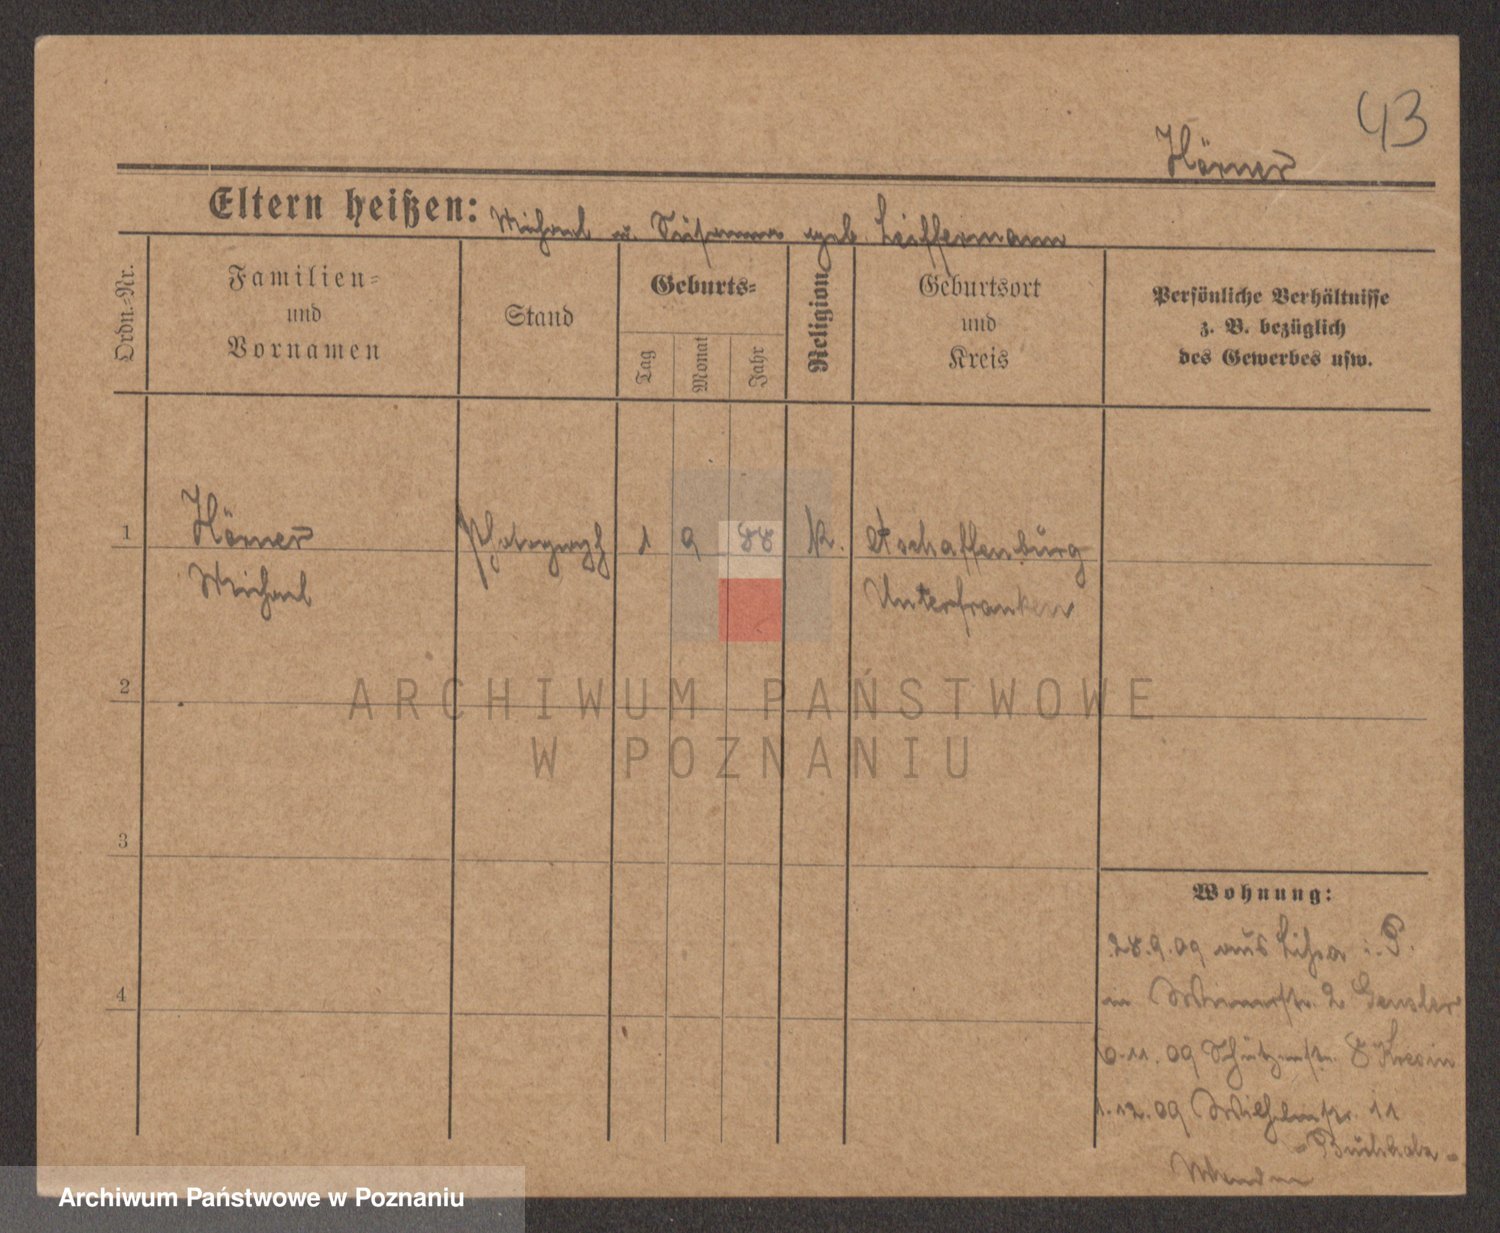 43
Hörner
Eltern heißen: Michael u. Susanna geb. Leiffermann
Ordn.-Nr.
Familien-
und
Vornamen
Stand
Geburts-
Tag
Monat
Jahr
Religion
Geburtsort
und
Kreis
Persönliche Verhältnisse
z. B. bezüglich
des Gewerbes usw.
1 Hörner Photograph 1 9 88 K. Aschaffenburg
Michael Unterfranken
2
ARCHIWUM PAŃSTWOWE
W POZNANIU
3
4
Wohnung:
28.9.09 aus Lissa i. P.
in 2 Gensler
6.11.09 Schützenstr. 8 Kresin
1.12.09 Wilhelmstr. 11
Archiwum Państwowe w Poznaniu